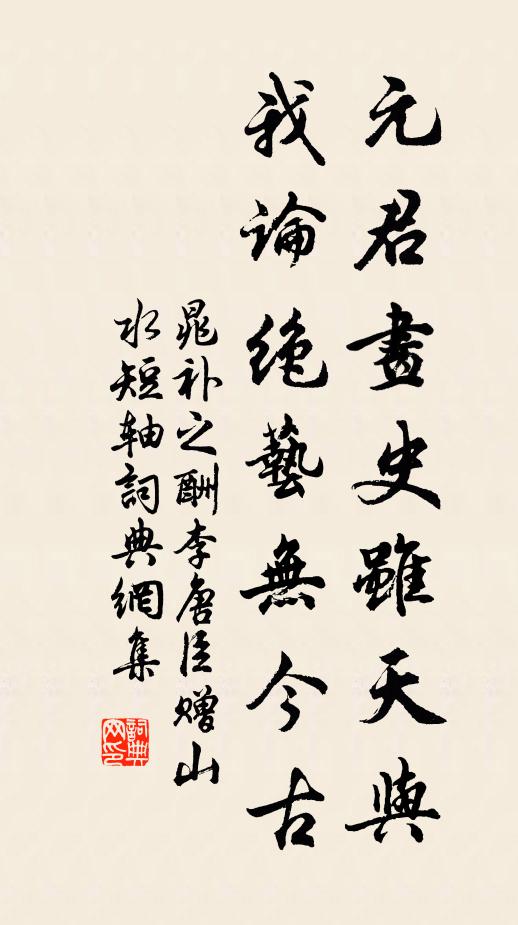 元君畫史雖天與
我論絕藝無今古
晁補之酬李唐臣贈山
水短軸詞典網集
詞典网印